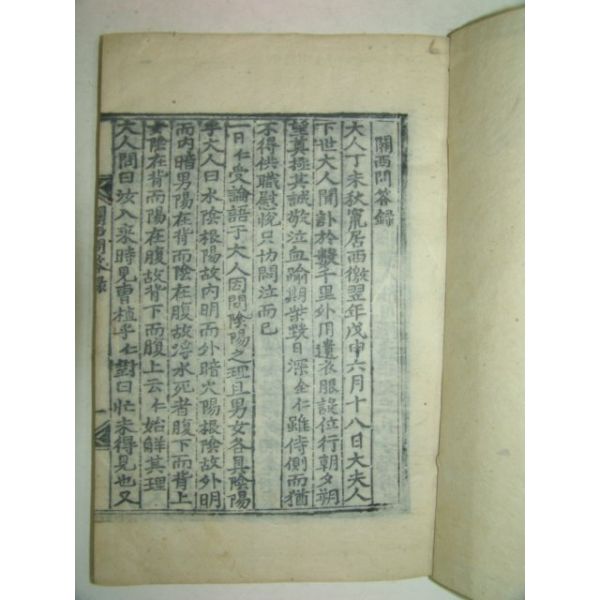 關西問答錄
大人丁未秋竄居西徼翌年戊申六月十八日大夫人
下世大人聞訃於數千里外用遺衣服設位行朝夕朔
望奠極其誠敬泣血踰期柴毀日深全仁雖侍側而猶
不得供職慰悅只切悶泣而已
一日仁受論語于大人因問陰陽之理且男女各具陰陽
乎大人曰水陰根陽故內明而外暗火陽根陰故外明
而內暗男陽在背而陰在腹故浮水死者腹下而背上
女陰在背而陽在腹故背下而腹上云仁始解其理
大人問曰汝入來時見曹植乎仁對曰忙未得見也又
關西問答錄
一